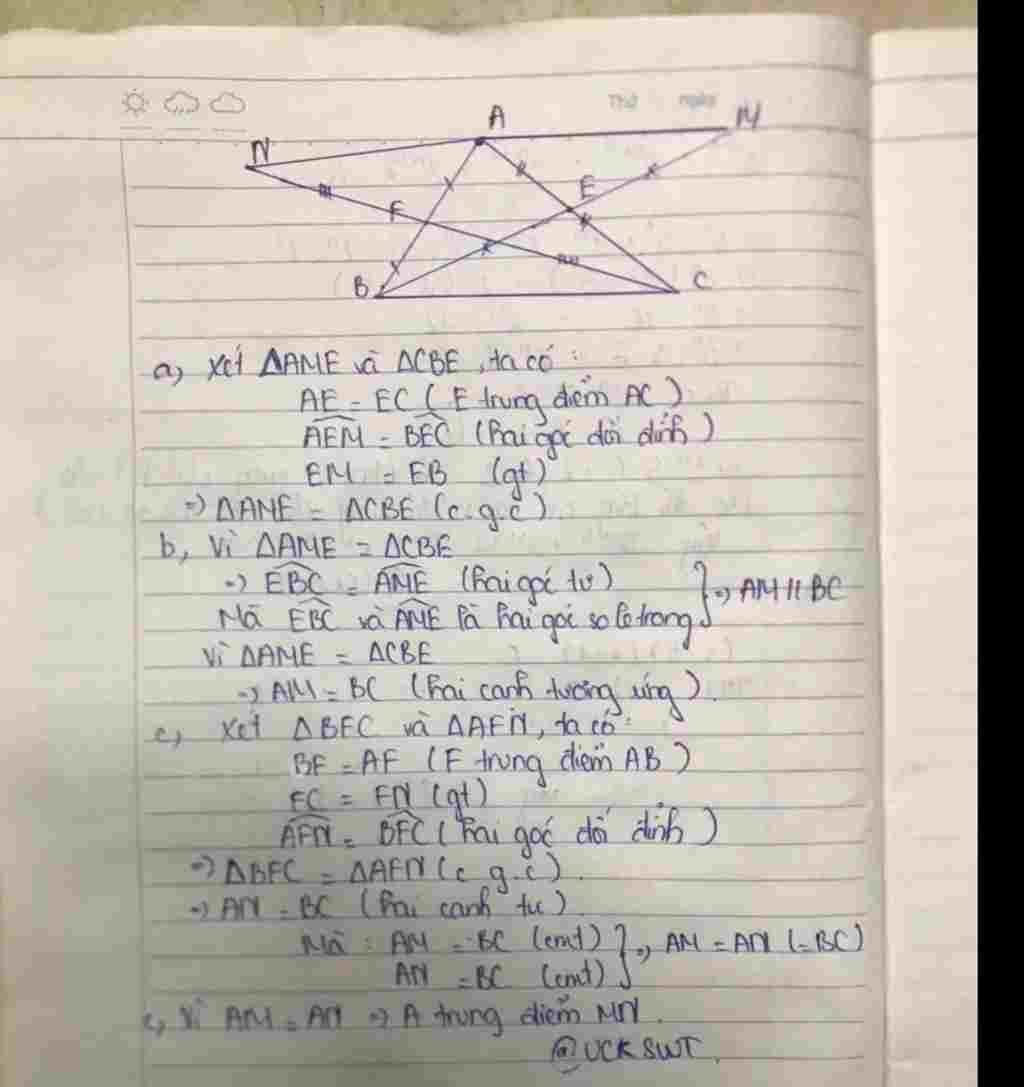 Thứ ngày
A
M
N
E
F
B
C
a, Xét ΔAME và ΔCBE, ta có :
AE = EC ( E trung điểm AC )
AEM = BEC (hai góc đối đỉnh )
EM = EB (gt)
=> ΔAME = ΔCBE (c.g.c)
b, Vì ΔAME = ΔCBE
=> EBC = AME (hai góc tư) } => AM // BC
Mà EBC và AME là hai góc so le trong
Vì ΔAME = ΔCBE
=> AM = BC (hai cạnh tương ứng).
c, Xét ΔBFC và ΔAFN, ta có :
BF = AF (F trung điểm AB )
FC = FN (gt)
AFN = BFC ( hai góc đối đỉnh )
=> ΔBFC = ΔAFN (c.g.c).
=> AN = BC (hai cạnh tư)
Mà : AM = BC (cmt) } => AM = AN (=BC)
AN = BC (cmt)
c, Vì AM = AN => A trung điểm MN.
@UCKSWT